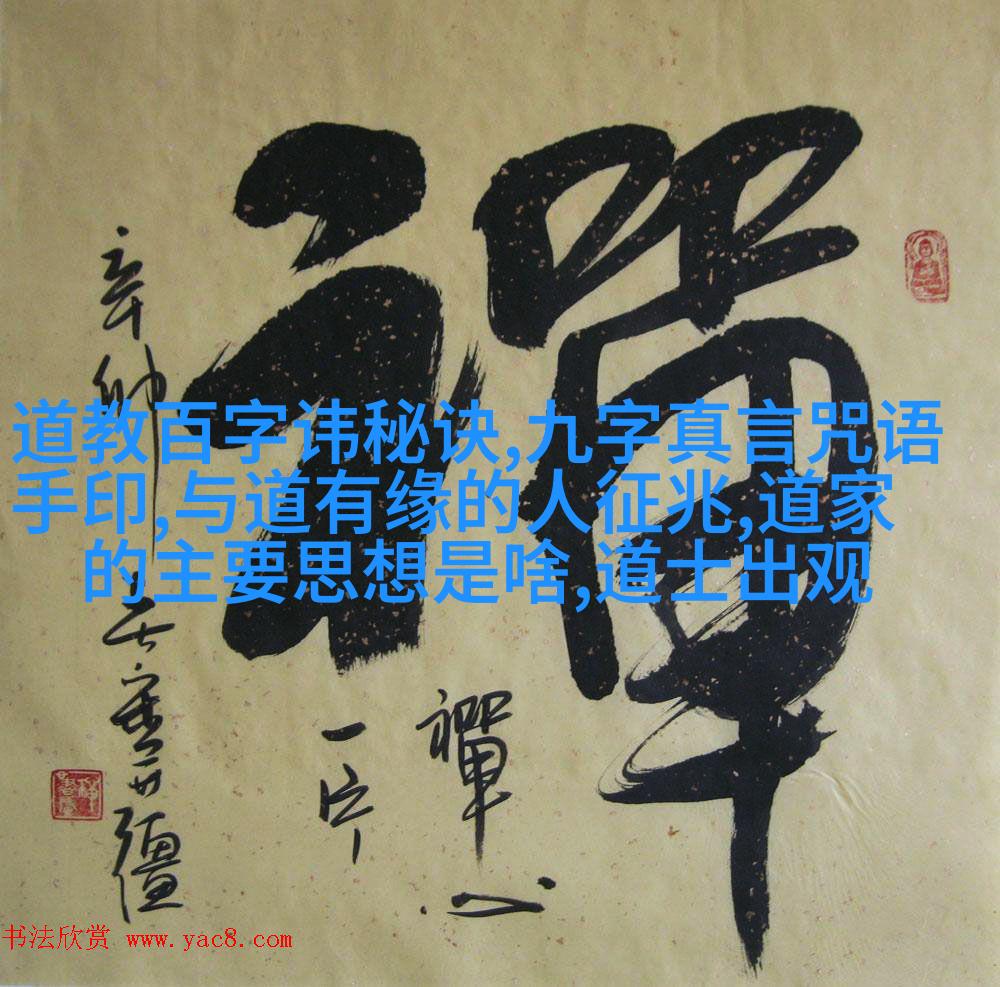 禪
道教百字讳秘诀,九字真言咒语
手印,与道有缘的人征兆,道家
的主要思想是啥,道士出观
禪心
一片
辛卯
书法欣赏 www.yac8.com